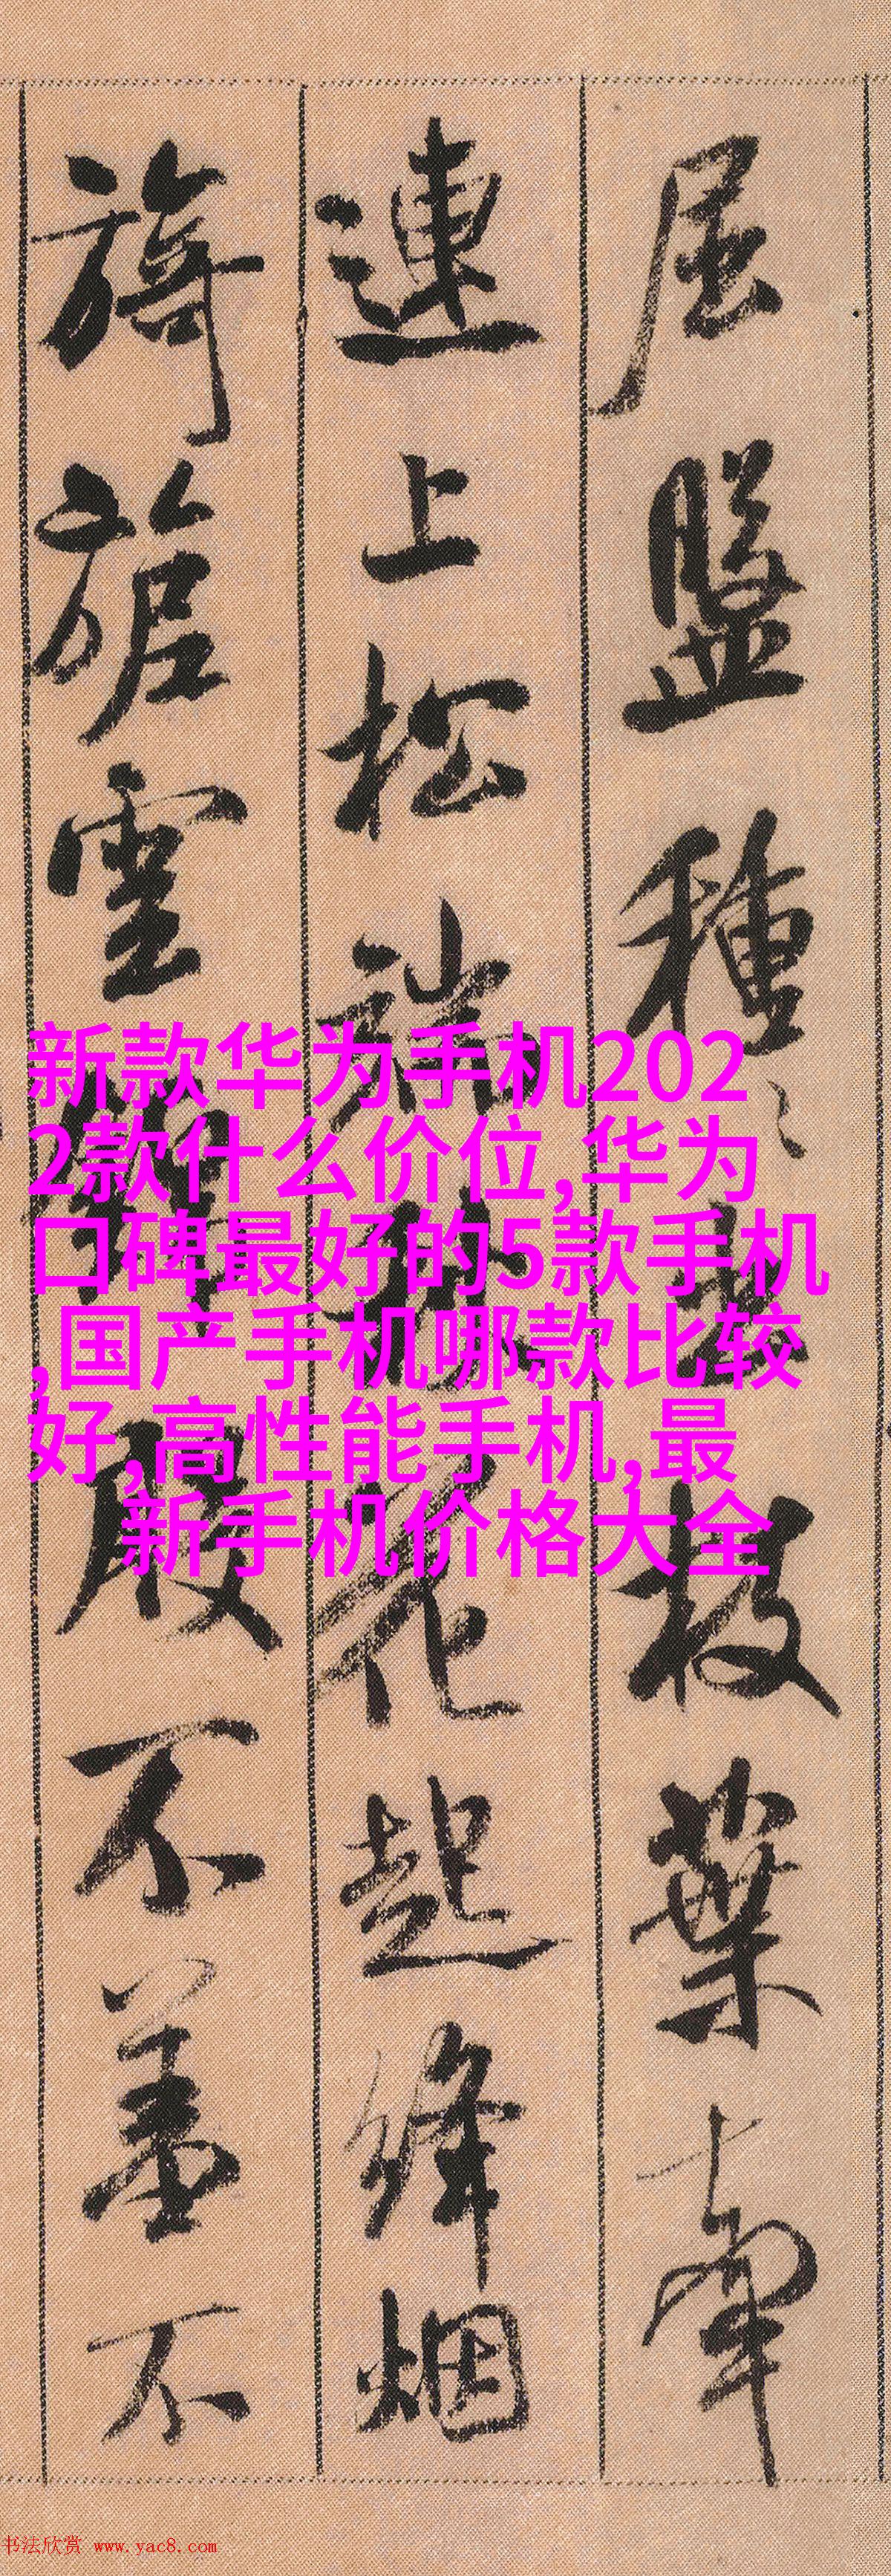 屈盤種〻出枝葉牽
連上松端秋花起絳烟
旖旎雲錦殷不羞不
新款华为手机202
2款什么价位,华为
口碑最好的5款手机
,国产手机哪款比较
好,高性能手机,最
新手机价格大全
书法欣赏 www.yac8.com